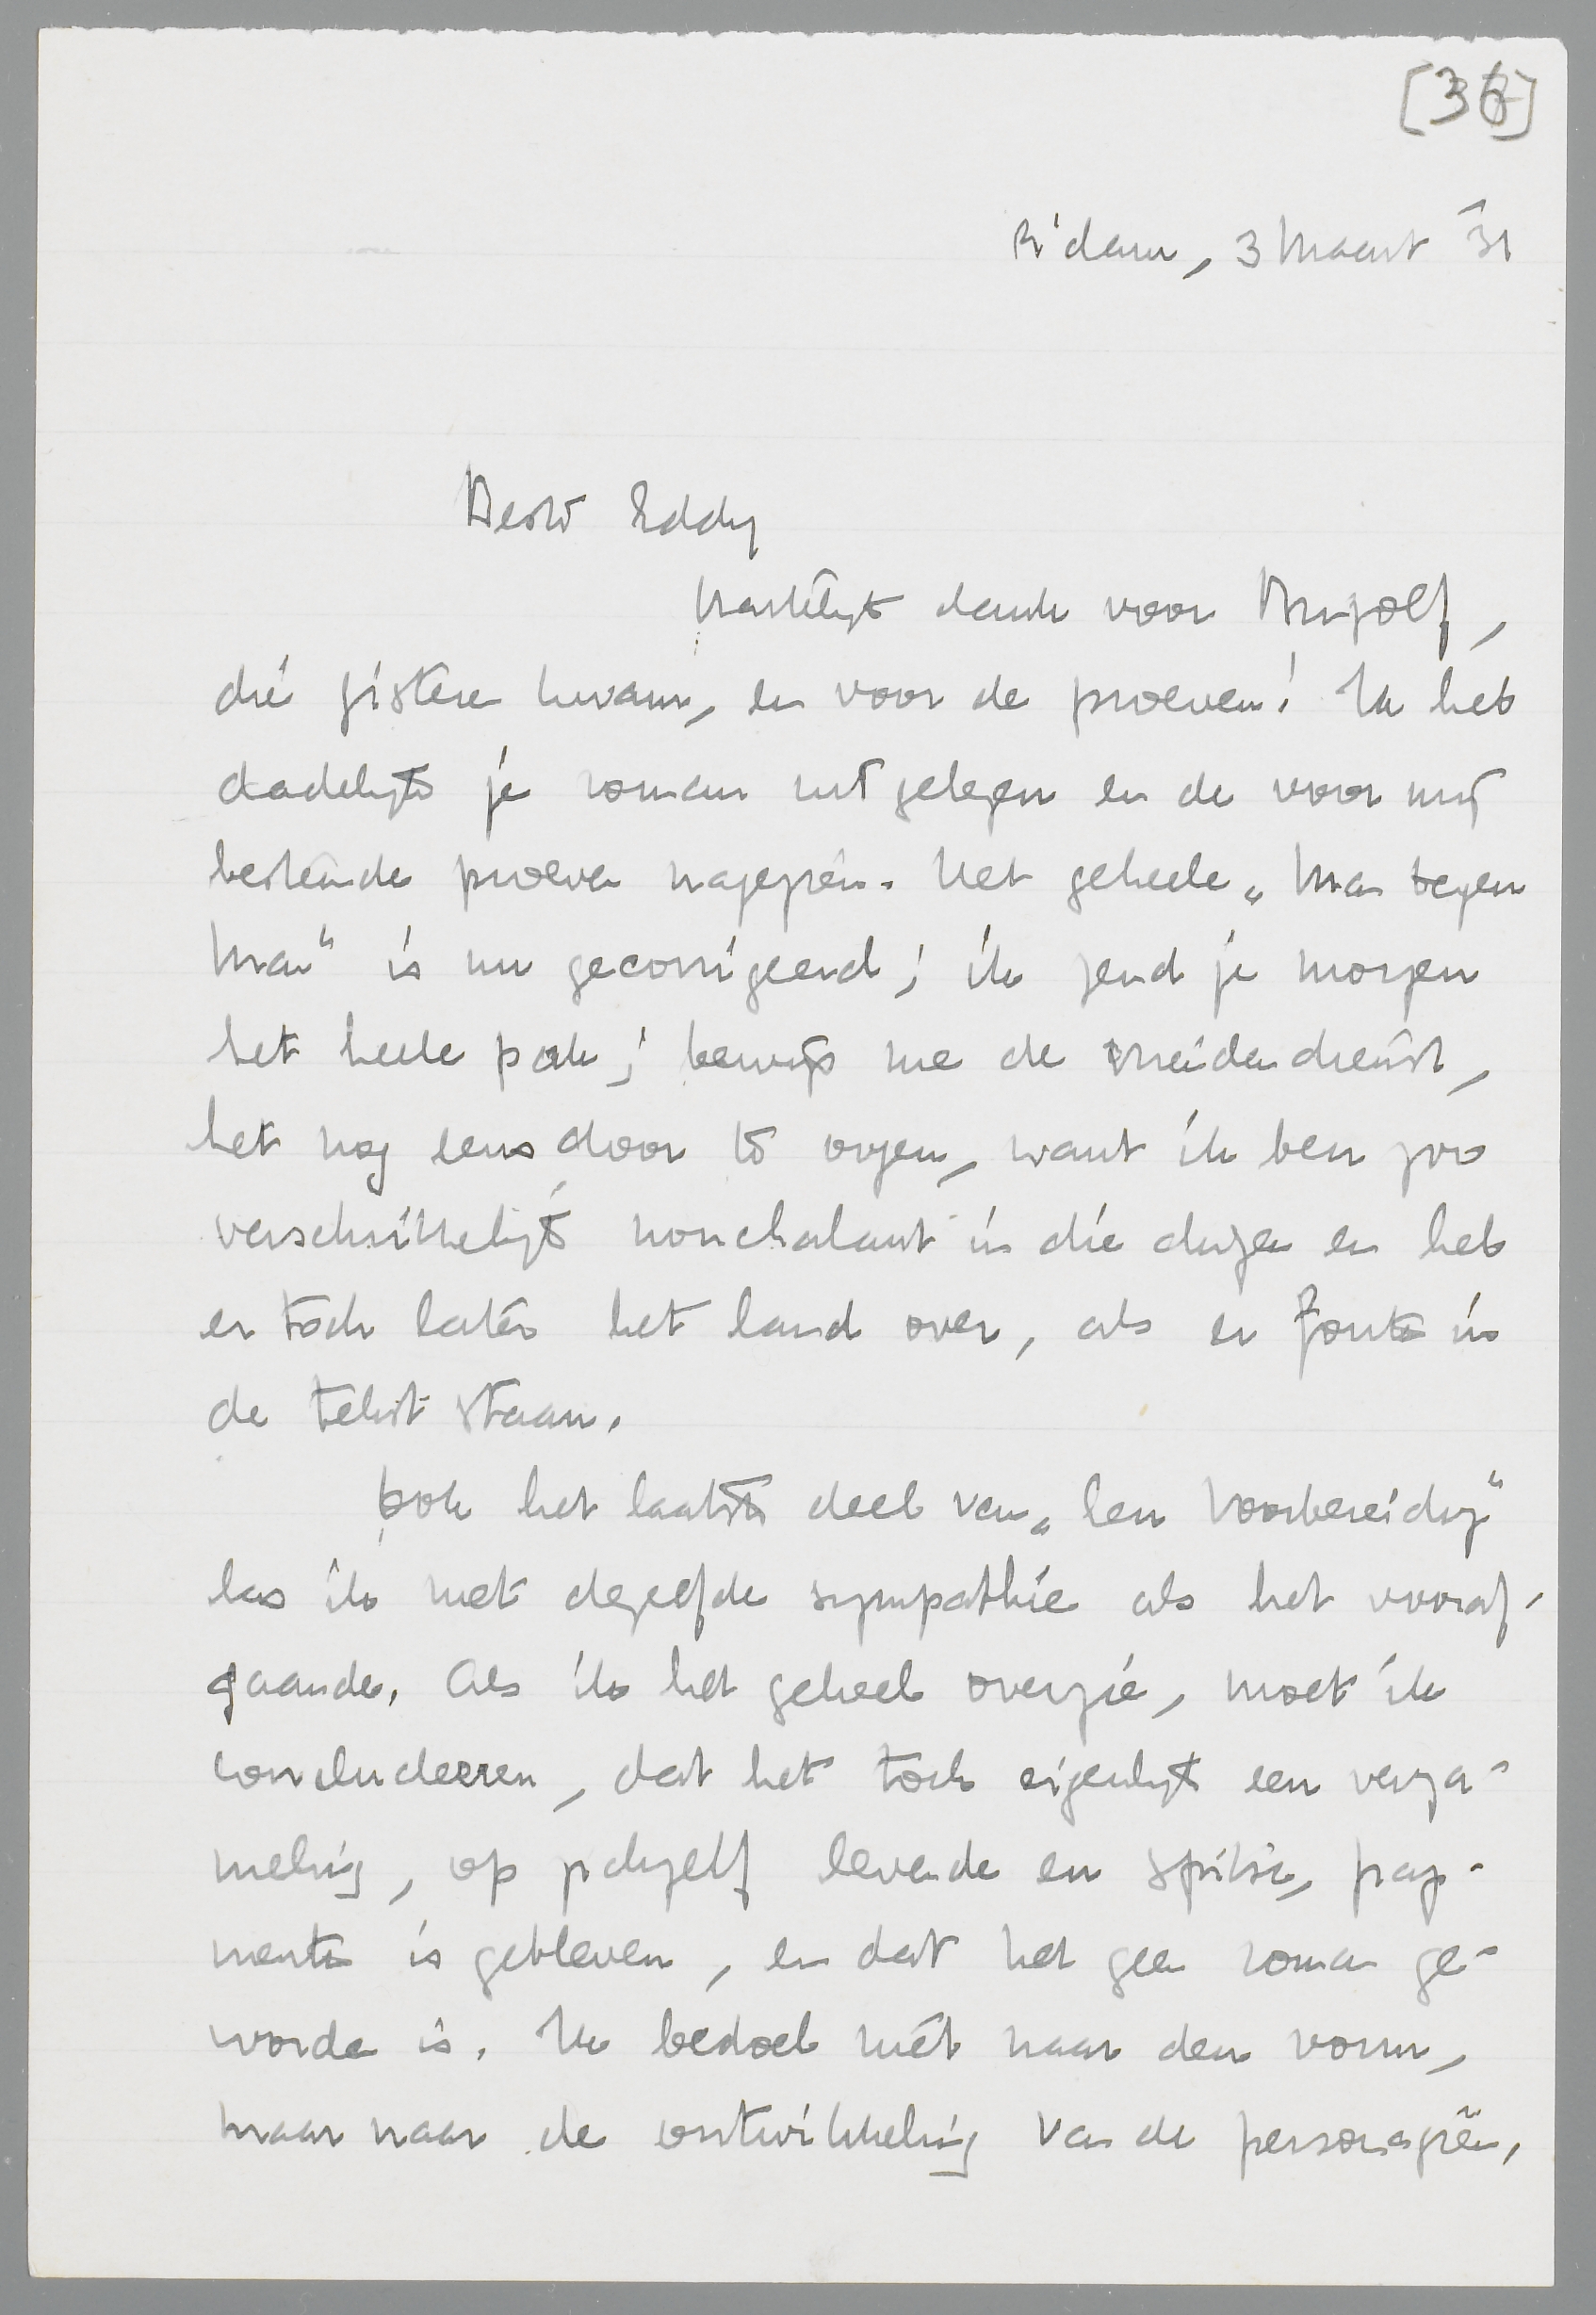 [36]
R'dam, 3 Maart '31
Beste Eddy
Hartelijk dank voor
die gisteren kwam, en voor de proeven! Ik heb
dadelijk je roman uitgelezen en de voor mij
bestemde proeven nagezien. Het geheele „Man tegen
Man" is nu gecorrigeerd; ik zend je morgen
het heele pak; bewijs me de vriendendienst,
het nog eens door te vegen, want ik ben zoo
verschrikkelijk nonchalant in die dingen en heb
er toch later het land over, als er fouten in
de tekst staan.
Ook het laatste deel van „Een Voorbereiding"
las ik met dezelfde sympathie als het vooraf-
gaande. Als ik het geheel overzie, moet ik
concludeeren, dat het toch eigenlijk een verza-
meling, op zichzelf levende en spitse, frag-
menten is gebleven, en dat het geen roman ge-
worden is. Ik bedoel niet naar den vorm,
maar naar de ontwikkeling van de personagiën,